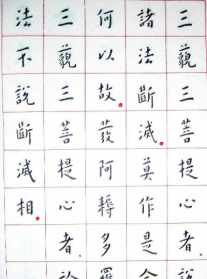 三藐三菩提心者.說
諸法斷滅.莫作是念
何以故.發阿耨多羅
三藐三菩提心者.於
法不說斷滅相.